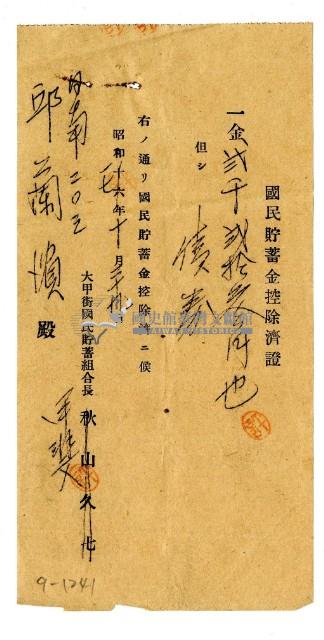 國民貯蓄金控除濟證
一金貳千貳拾叁円也
但シ
債券
右ノ通リ國民貯蓄金控除濟ニ候
昭和十六年十月
大甲街國民貯蓄組合長 秋山久七
日南二〇三
邱蘭濱殿
國史館臺灣文獻館
9-1241